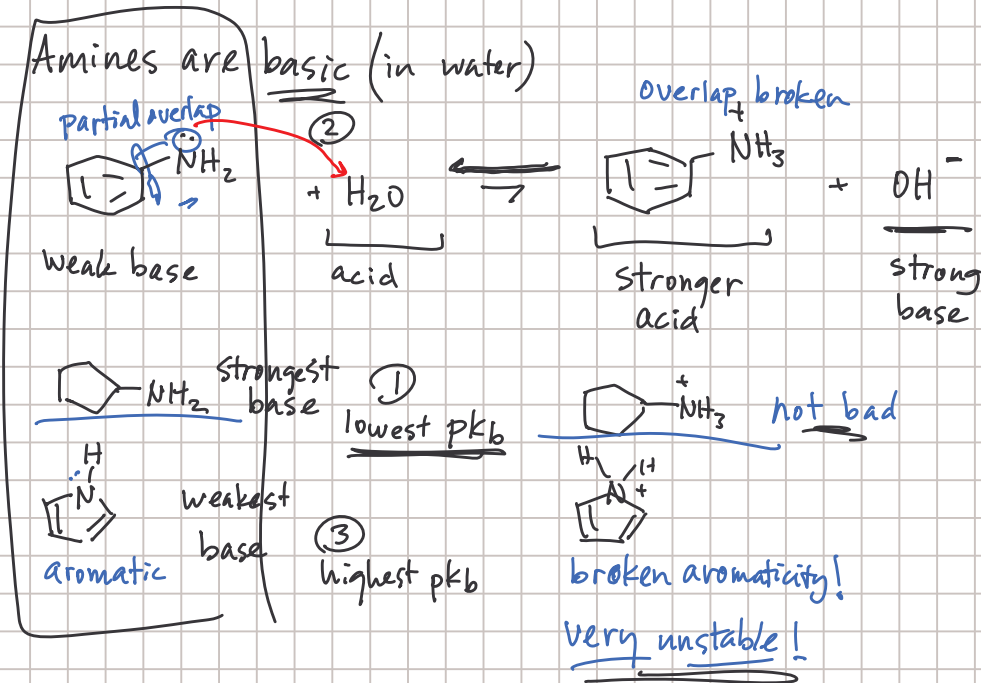 Amines are basic (in water)
partial overlap
overlap broken
②
NH2 + H2O ⇌ +NH3 + OH-
weak base
acid
stronger
acid
strong
base
NH2
strongest
base
①
lowest pkb
+NH3
not bad
H
N
weakest
base
aromatic
③
highest pkb
H H
N+
broken aromaticity!
very unstable!